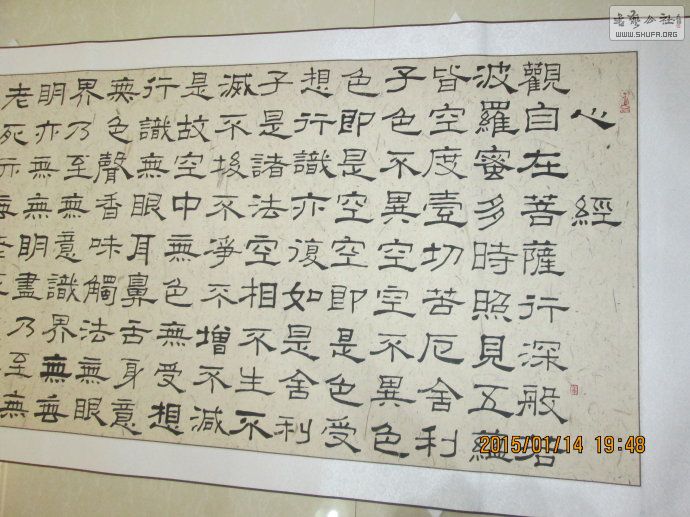 心經
觀自在菩薩行深般若
波羅蜜多時照見五蘊
皆空度壹切苦厄舍利
子色不異空空不異色
色即是空空即是色受
想行識亦復如是舍利
子是諸法空相不生不
滅不垢不淨不增不減
是故空中無色無受想
行識無眼耳鼻舌身意
無色聲香味觸法無眼
界乃至無意識界無無
明亦無無明盡乃至無
老死亦
2015/01/14 19:48
WWW.SHUFA.ORG